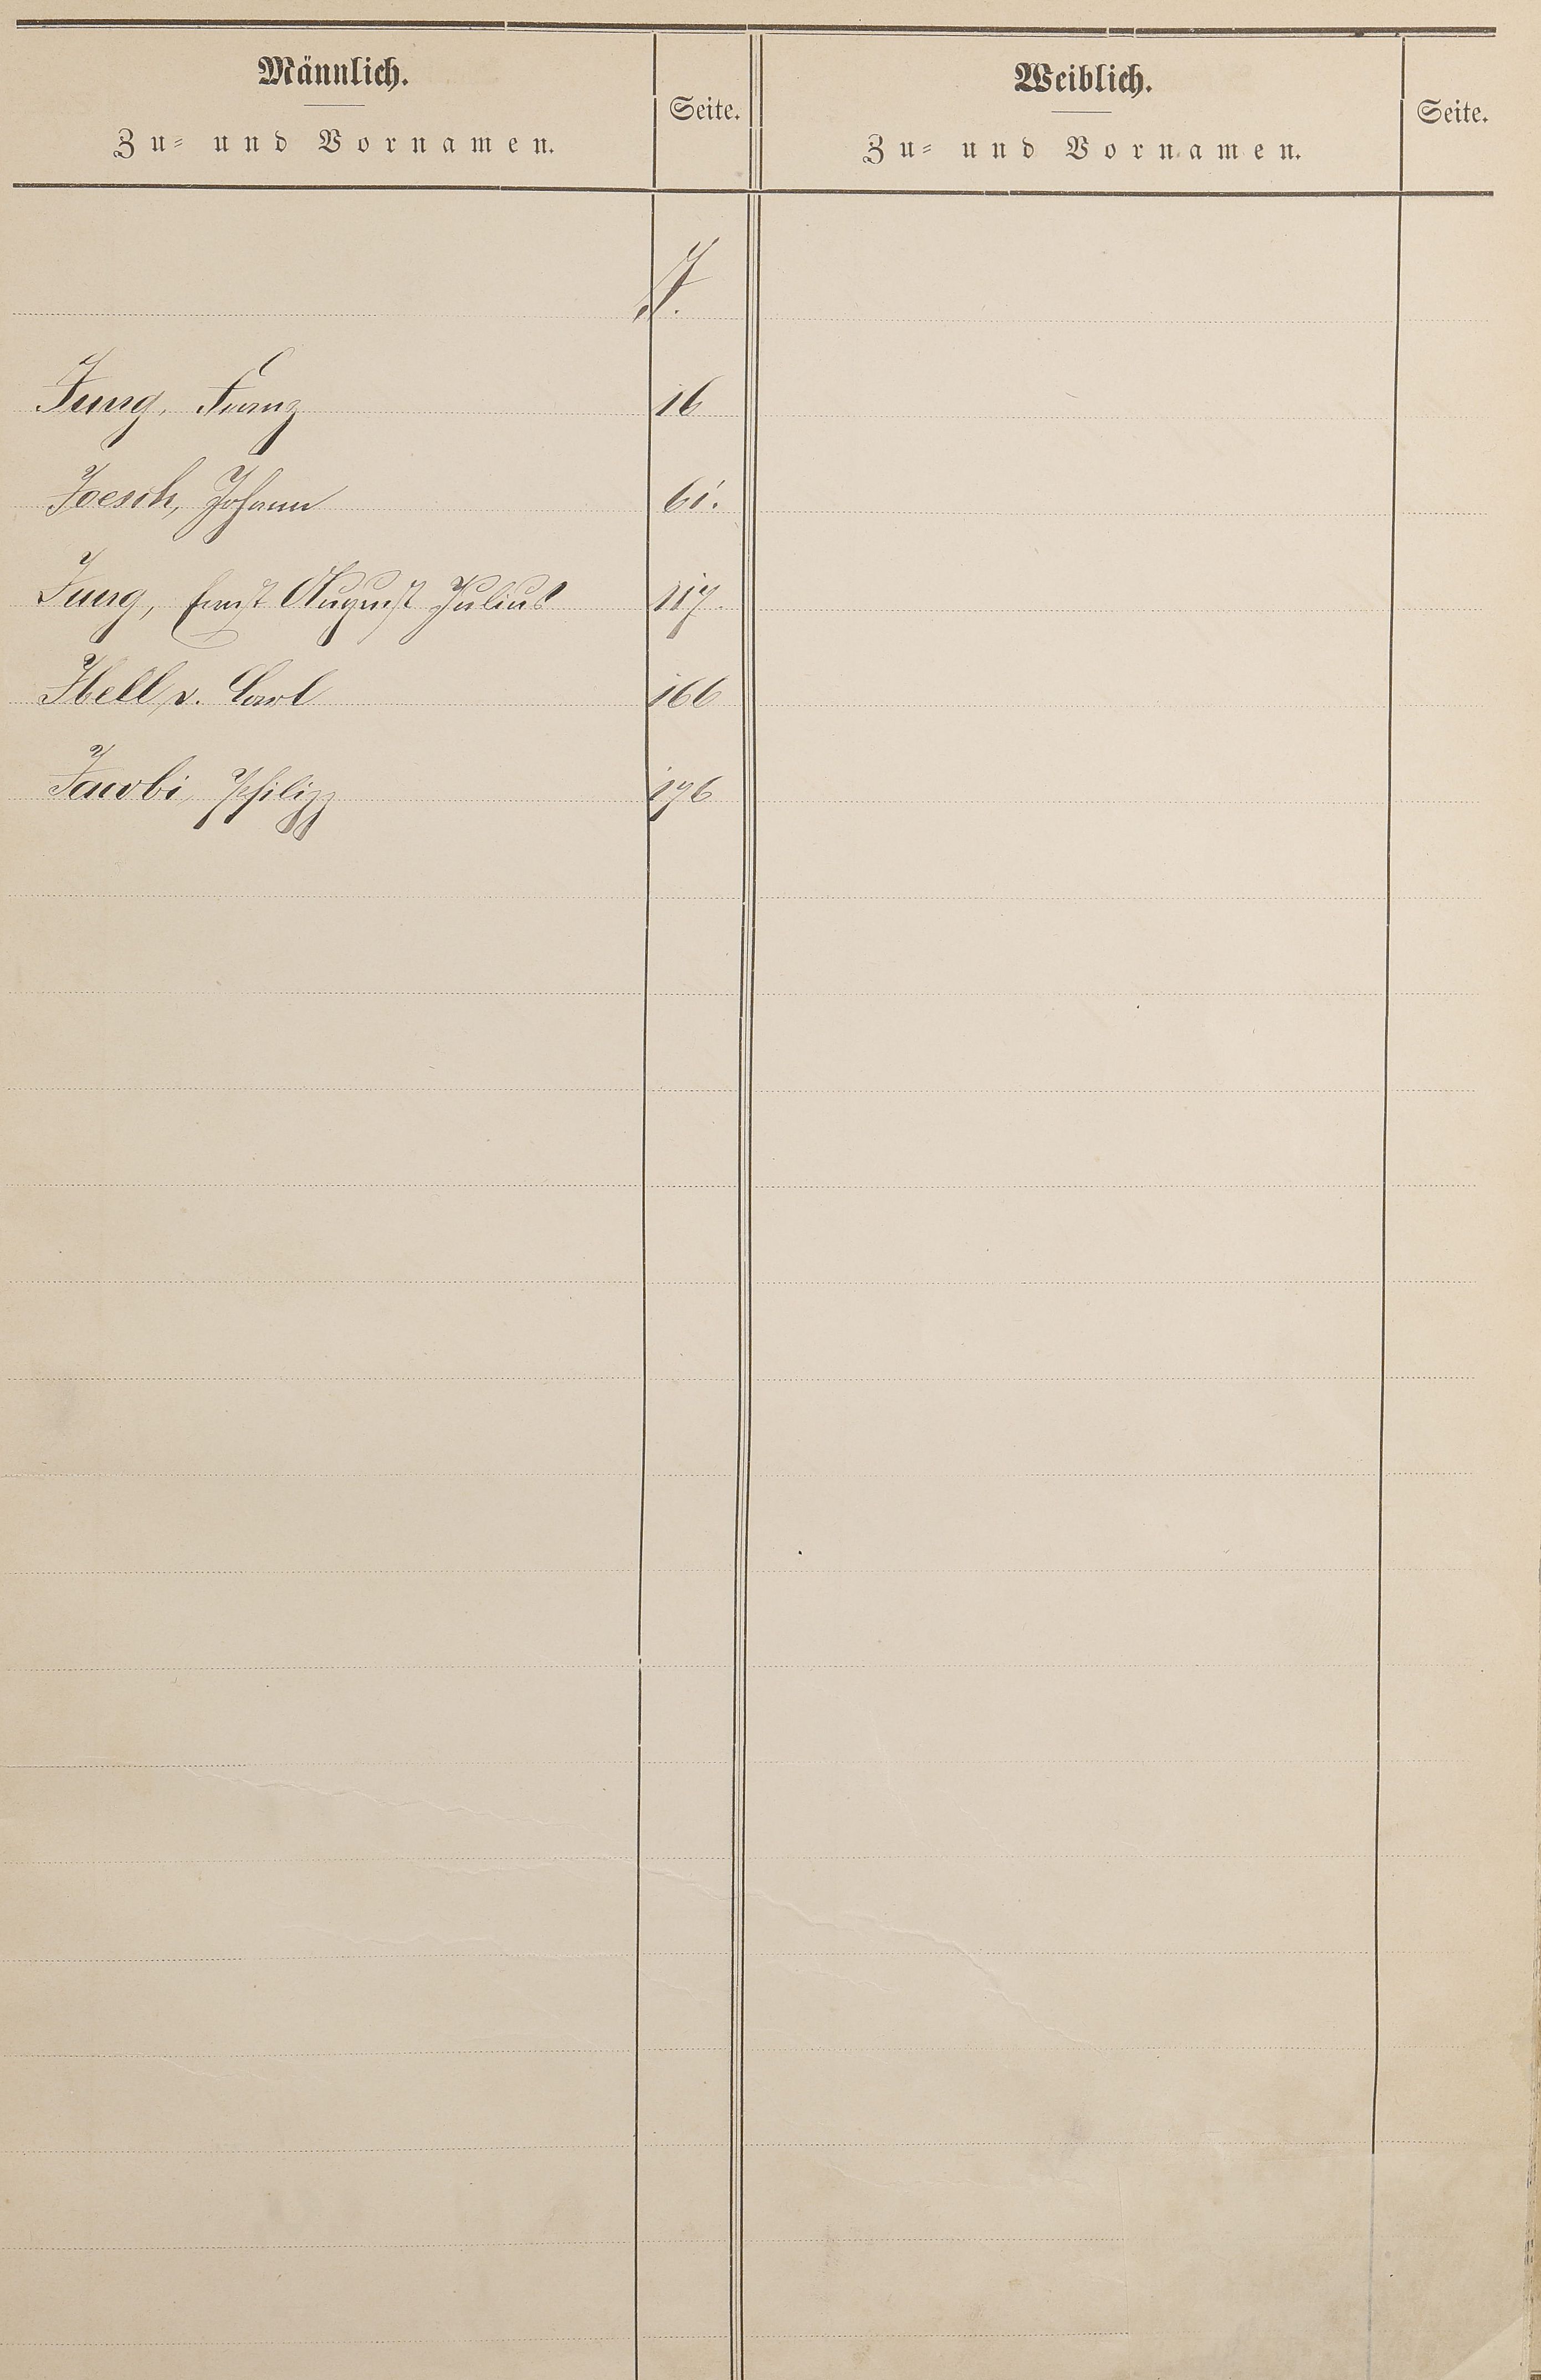 Männlich.
Zu- und Vornamen.
Seite.
Weiblich.
Zu- und Vornamen.
Seite.
J.
Jung, Franz 16
Joesch, Johann 61.
Jung, Ernst August Julius 117.
Ibell, v. Carl 166
Jacobi, Philipp 176